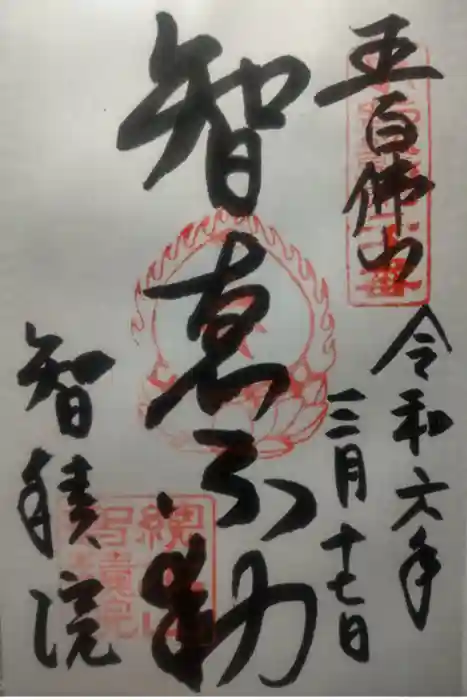 五百佛山
令和六年
三月十七日
智恵不動
智積院